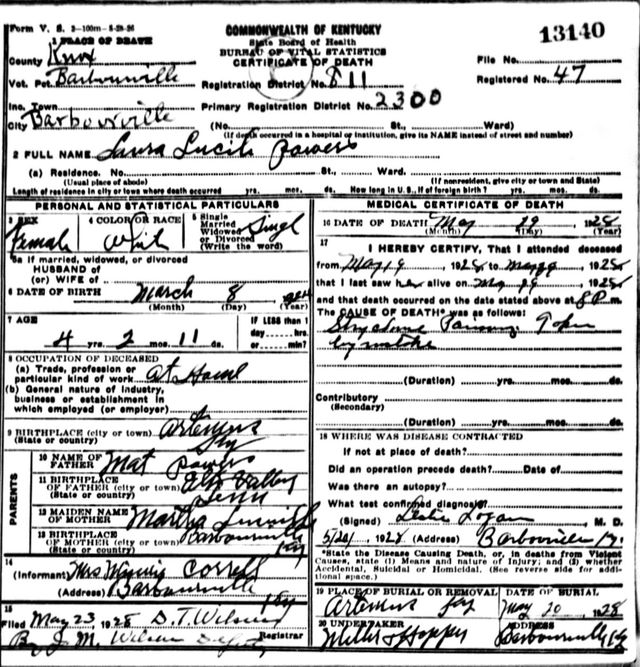 Form V. S. 2-100m-8-28-26
COMMONWEALTH OF KENTUCKY
State Board of Health
BUREAU OF VITAL STATISTICS
CERTIFICATE OF DEATH
13140
1 PLACE OF DEATH
County Knox
File No.
Vot. Pct. Barbourville
Registration District No. 811
Registered No. 47
Inc. Town
Primary Registration District No. 2300
City Barbourville
(No. St., Ward)
(If death occurred in a hospital or institution, give its NAME instead of street and number)
2 FULL NAME Laura Lucile Powers
(a) Residence. No. St., Ward.
(Usual place of abode) (If nonresident, give city or town and State)
Length of residence in city or town where death occurred yrs. mos. ds. How long in U. S., if of foreign birth? yrs. mos. ds.
PERSONAL AND STATISTICAL PARTICULARS
3 SEX Female
4 COLOR OR RACE White
5 Single Married Widowed or Divorced (Write the word) Singl
5a If married, widowed, or divorced
HUSBAND of
(or) WIFE of
6 DATE OF BIRTH March 8
(Month) (Day) (Year)
7 AGE
4 yrs. 2 mos. 11 ds.
IF LESS than 1 day hrs. or min?
8 OCCUPATION OF DECEASED
(a) Trade, profession or particular kind of work At Home
(b) General nature of industry, business or establishment in which employed (or employer)
9 BIRTHPLACE (city or town) Artemus
(State or country) Ky
PARENTS
10 NAME OF FATHER Mat Powers
11 BIRTHPLACE OF FATHER (city or town) Valley
(State or country) Tenn
12 MAIDEN NAME OF MOTHER Martha
13 BIRTHPLACE OF MOTHER (city or town) Barbourville
(State or country) Ky
14 (Informant) Mrs Correll
(Address) Barbourville Ky
15 Filed May 23, 1928 D. T. Wilson
Registrar
By J. M. Wilson Deputy
MEDICAL CERTIFICATE OF DEATH
16 DATE OF DEATH May 1928
(Month) (Day) (Year)
17 I HEREBY CERTIFY, That I attended deceased
from May 19 1928 to May 1928
that I last saw her alive on May 1928
and that death occurred on the date stated above at 8 P.m.
The CAUSE OF DEATH* was as follows:
Strychnine Poisoning Taken
by mistake
(Duration) yrs. mos. ds.
Contributory
(Secondary)
(Duration) yrs. mos. ds.
18 WHERE WAS DISEASE CONTRACTED
If not at place of death?
Did an operation precede death? Date of
Was there an autopsy?
What test confirmed diagnosis?
(Signed) Leslie Logan M. D.
1928 (Address) Barbourville Ky.
*State the Disease Causing Death, or, in deaths from Violent
Causes, state (1) Means and nature of Injury; and (2) whether
Accidental, Suicidal or Homicidal. (See reverse side for addi-
tional space.)
19 PLACE OF BURIAL OR REMOVAL Artemus Ky
DATE OF BURIAL May 20 1928
20 UNDERTAKER Miller & Hopper
ADDRESS Barbourville Ky